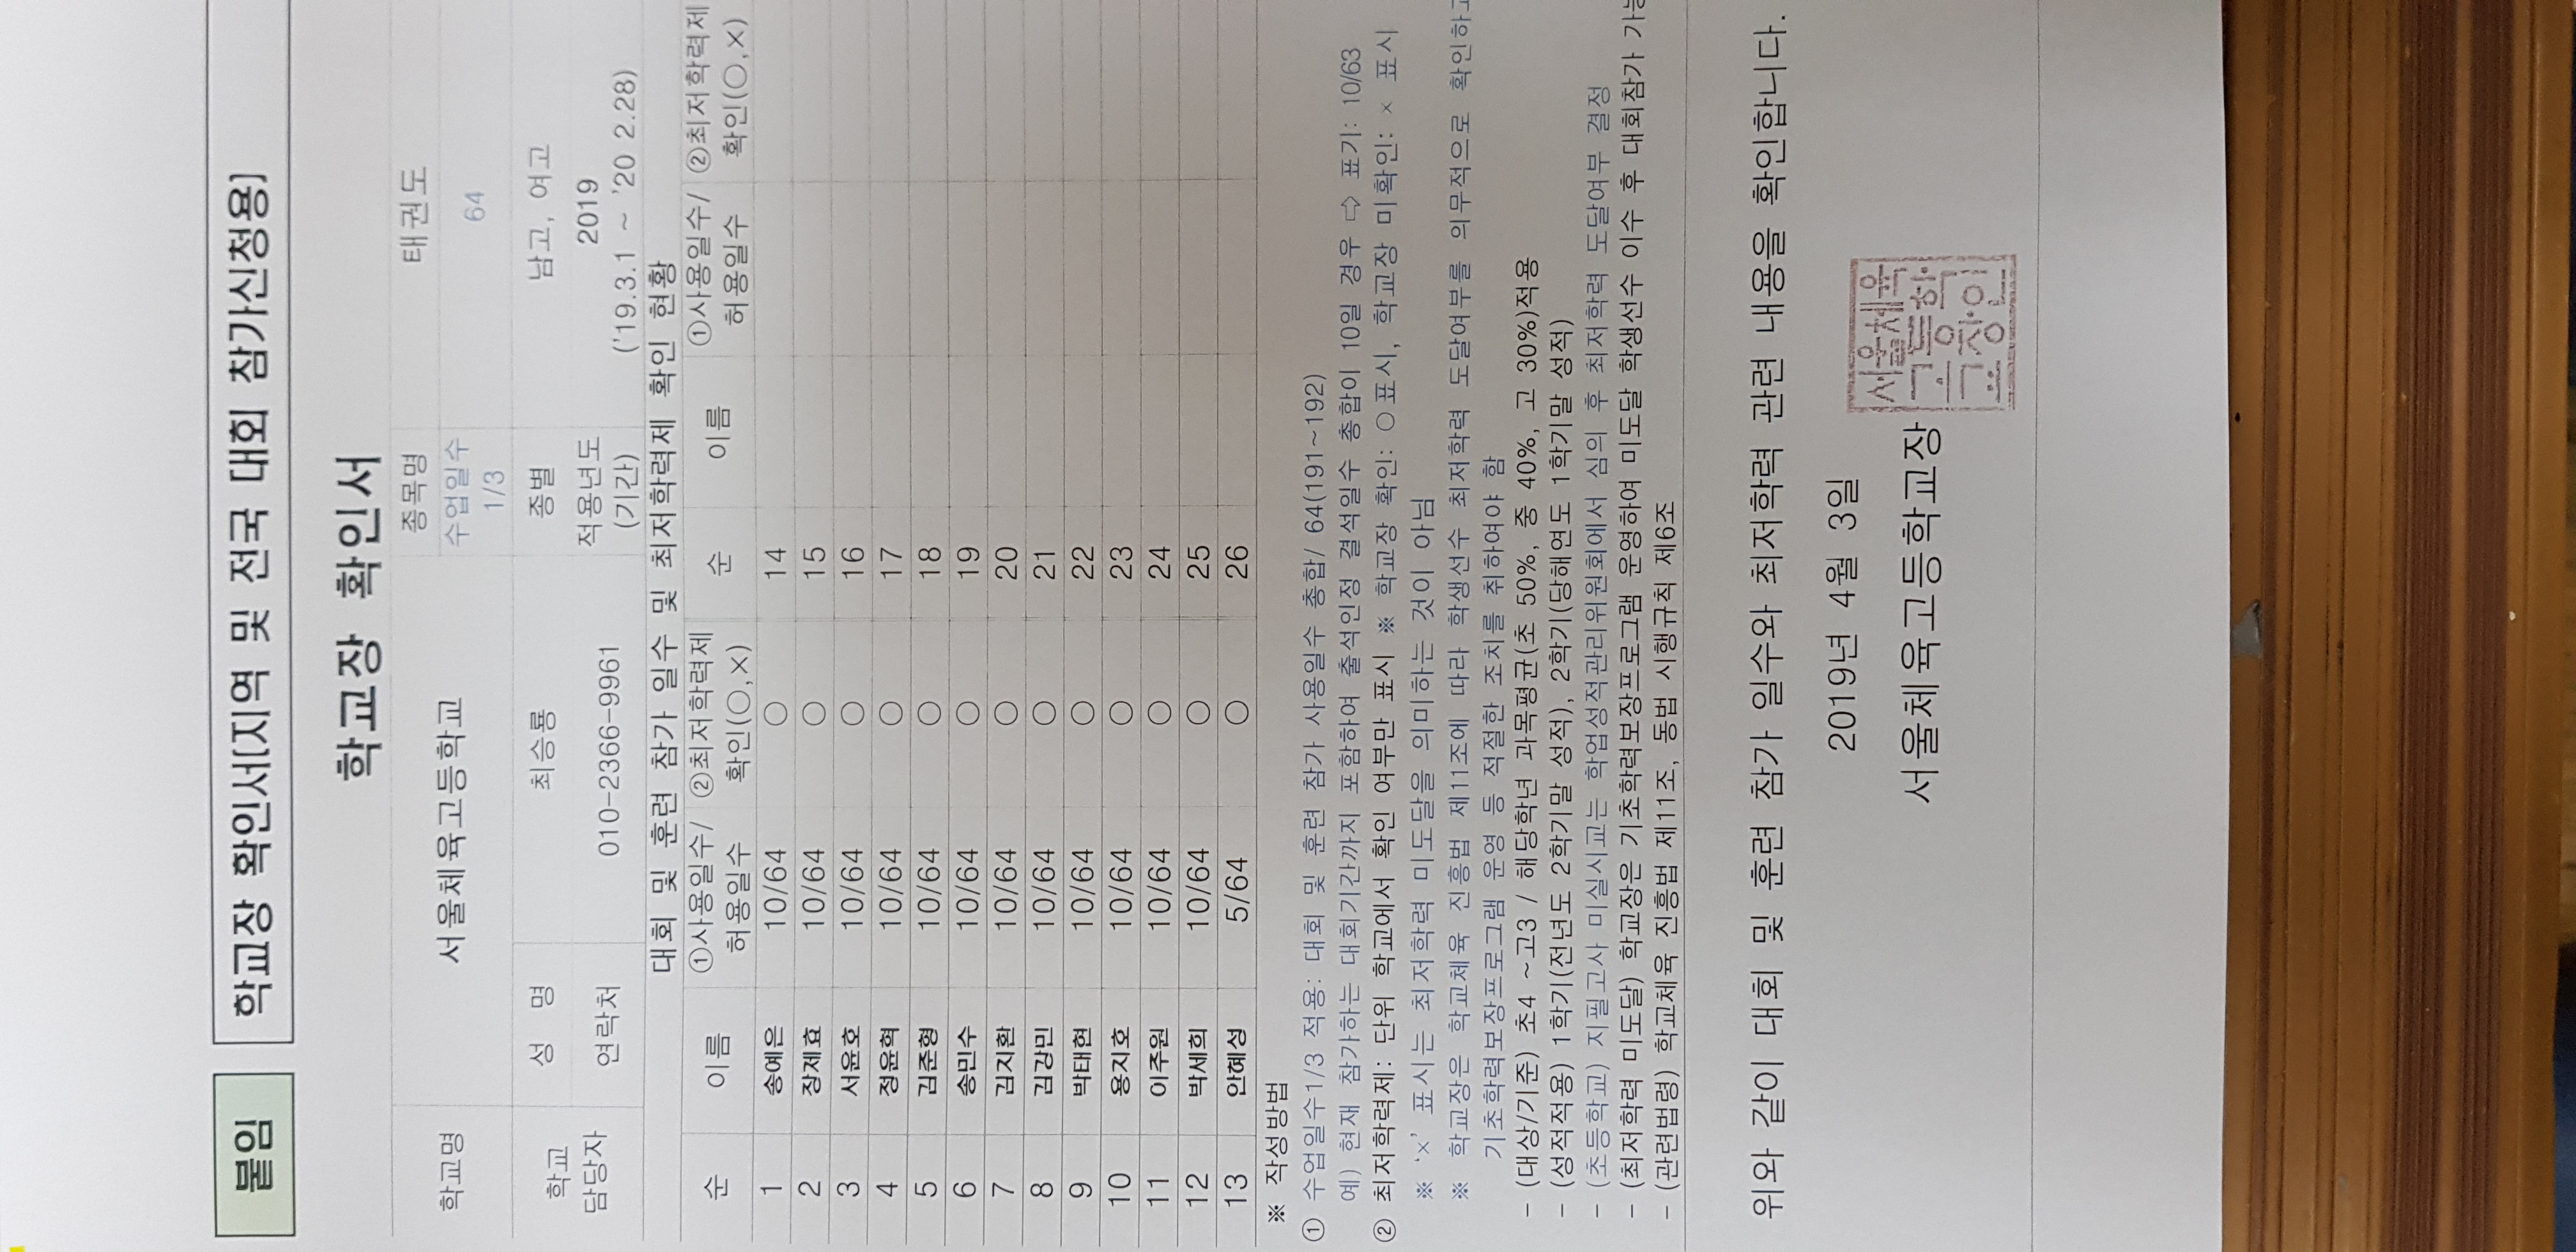 붙임
학교장 확인서(지역 및 전국 대회 참가신청용)
학교장 확인서
학교명 서울체육고등학교 종목명 태권도
수업일수 1/3 64
학교 담당자 성 명 최승룡 종별 남고, 여고
연락처 010-2366-9961 적용년도 (기간) 2019 ('19.3.1 ~ '20 2.28)
대회 및 훈련 참가 일수 및 최저학력제 확인 현황
순 이름 ①사용일수/허용일수 ②최저학력제 확인(○,×) 순 이름 ①사용일수/허용일수 ②최저학력제 확인(○,×)
1 송예은 10/64 ○ 14
2 장제효 10/64 ○ 15
3 서윤호 10/64 ○ 16
4 정윤혁 10/64 ○ 17
5 김준형 10/64 ○ 18
6 송민수 10/64 ○ 19
7 김지환 10/64 ○ 20
8 김강민 10/64 ○ 21
9 박태현 10/64 ○ 22
10 용지호 10/64 ○ 23
11 이주원 10/64 ○ 24
12 박세희 10/64 ○ 25
13 안혜성 5/64 ○ 26
※ 작성방법
① 수업일수1/3 적용: 대회 및 훈련 참가 사용일수 총합/ 64(191~192)
예) 현재 참가하는 대회기간까지 포함하여 출석인정 결석일수 총합이 10일 경우 ⇨ 표기: 10/63
② 최저학력제: 단위 학교에서 확인 여부만 표시 ※ 학교장 확인: ○ 표시, 학교장 미확인: × 표시
※ '×' 표시는 최저학력 미도달을 의미하는 것이 아님
※ 학교장은 학교체육 진흥법 제11조에 따라 학생선수 최저학력 도달여부를 의무적으로 확인하고
기초학력보장프로그램 운영 등 적절한 조치를 취하여야 함
- (대상/기준) 초4 ~고3 / 해당학년 과목평균(초 50%, 중 40%, 고 30%)적용
- (성적적용) 1학기(전년도 2학기말 성적), 2학기(당해연도 1학기말 성적)
- (초등학교) 지필고사 미실시교는 학업성적관리위원회에서 심의 후 최저학력 도달여부 결정
- (최저학력 미도달) 학교장은 기초학력보장프로그램 운영하여 미도달 학생선수 이수 후 대회참가 가능
- (관련법령) 학교체육 진흥법 제11조, 동법 시행규칙 제6조
위와 같이 대회 및 훈련 참가 일수와 최저학력 관련 내용을 확인합니다.
2019년 4월 3일
서울체육고등학교장
서울체육
고등학
교장인